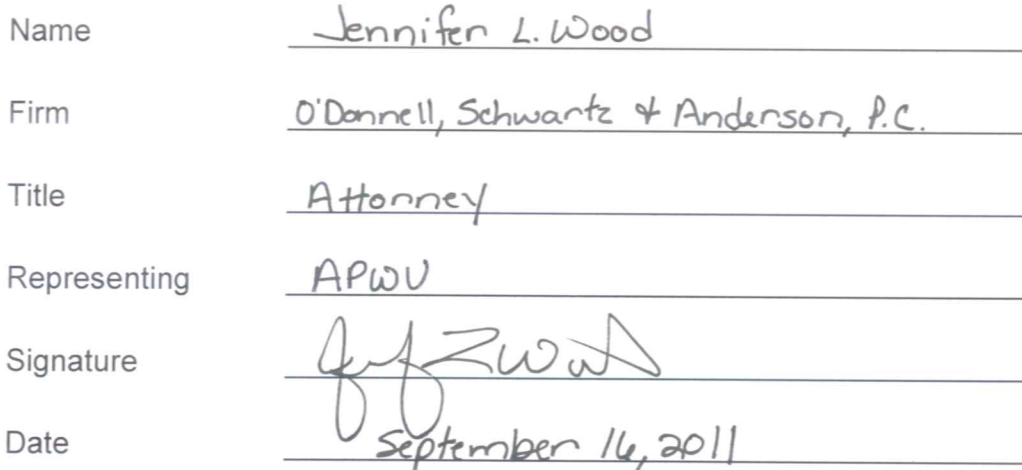 Name Jennifer L. Wood
Firm O'Donnell, Schwartz & Anderson, P.C.
Title Attorney
Representing APWU
Signature
Date September 16, 2011